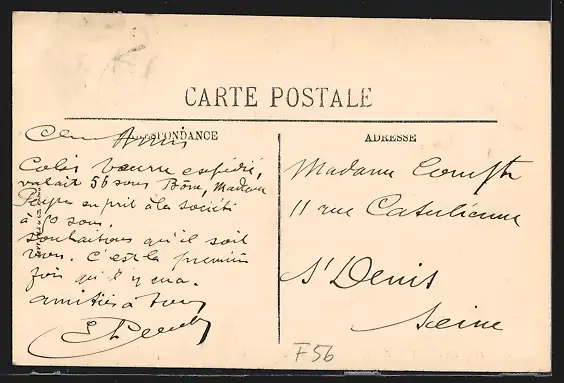 CARTE POSTALE
CORRESPONDANCE
ADRESSE
Amis
Colis beurre expédié,
valait 56 sous Bône, Madame
en prit à la société
à 50 sous.
souhaitons qu'il soit
bon. C'est la première
fois qu'il y en a.
amitiés à tous
Madame Compte
11 rue Catulienne
St Denis
Seine
F56